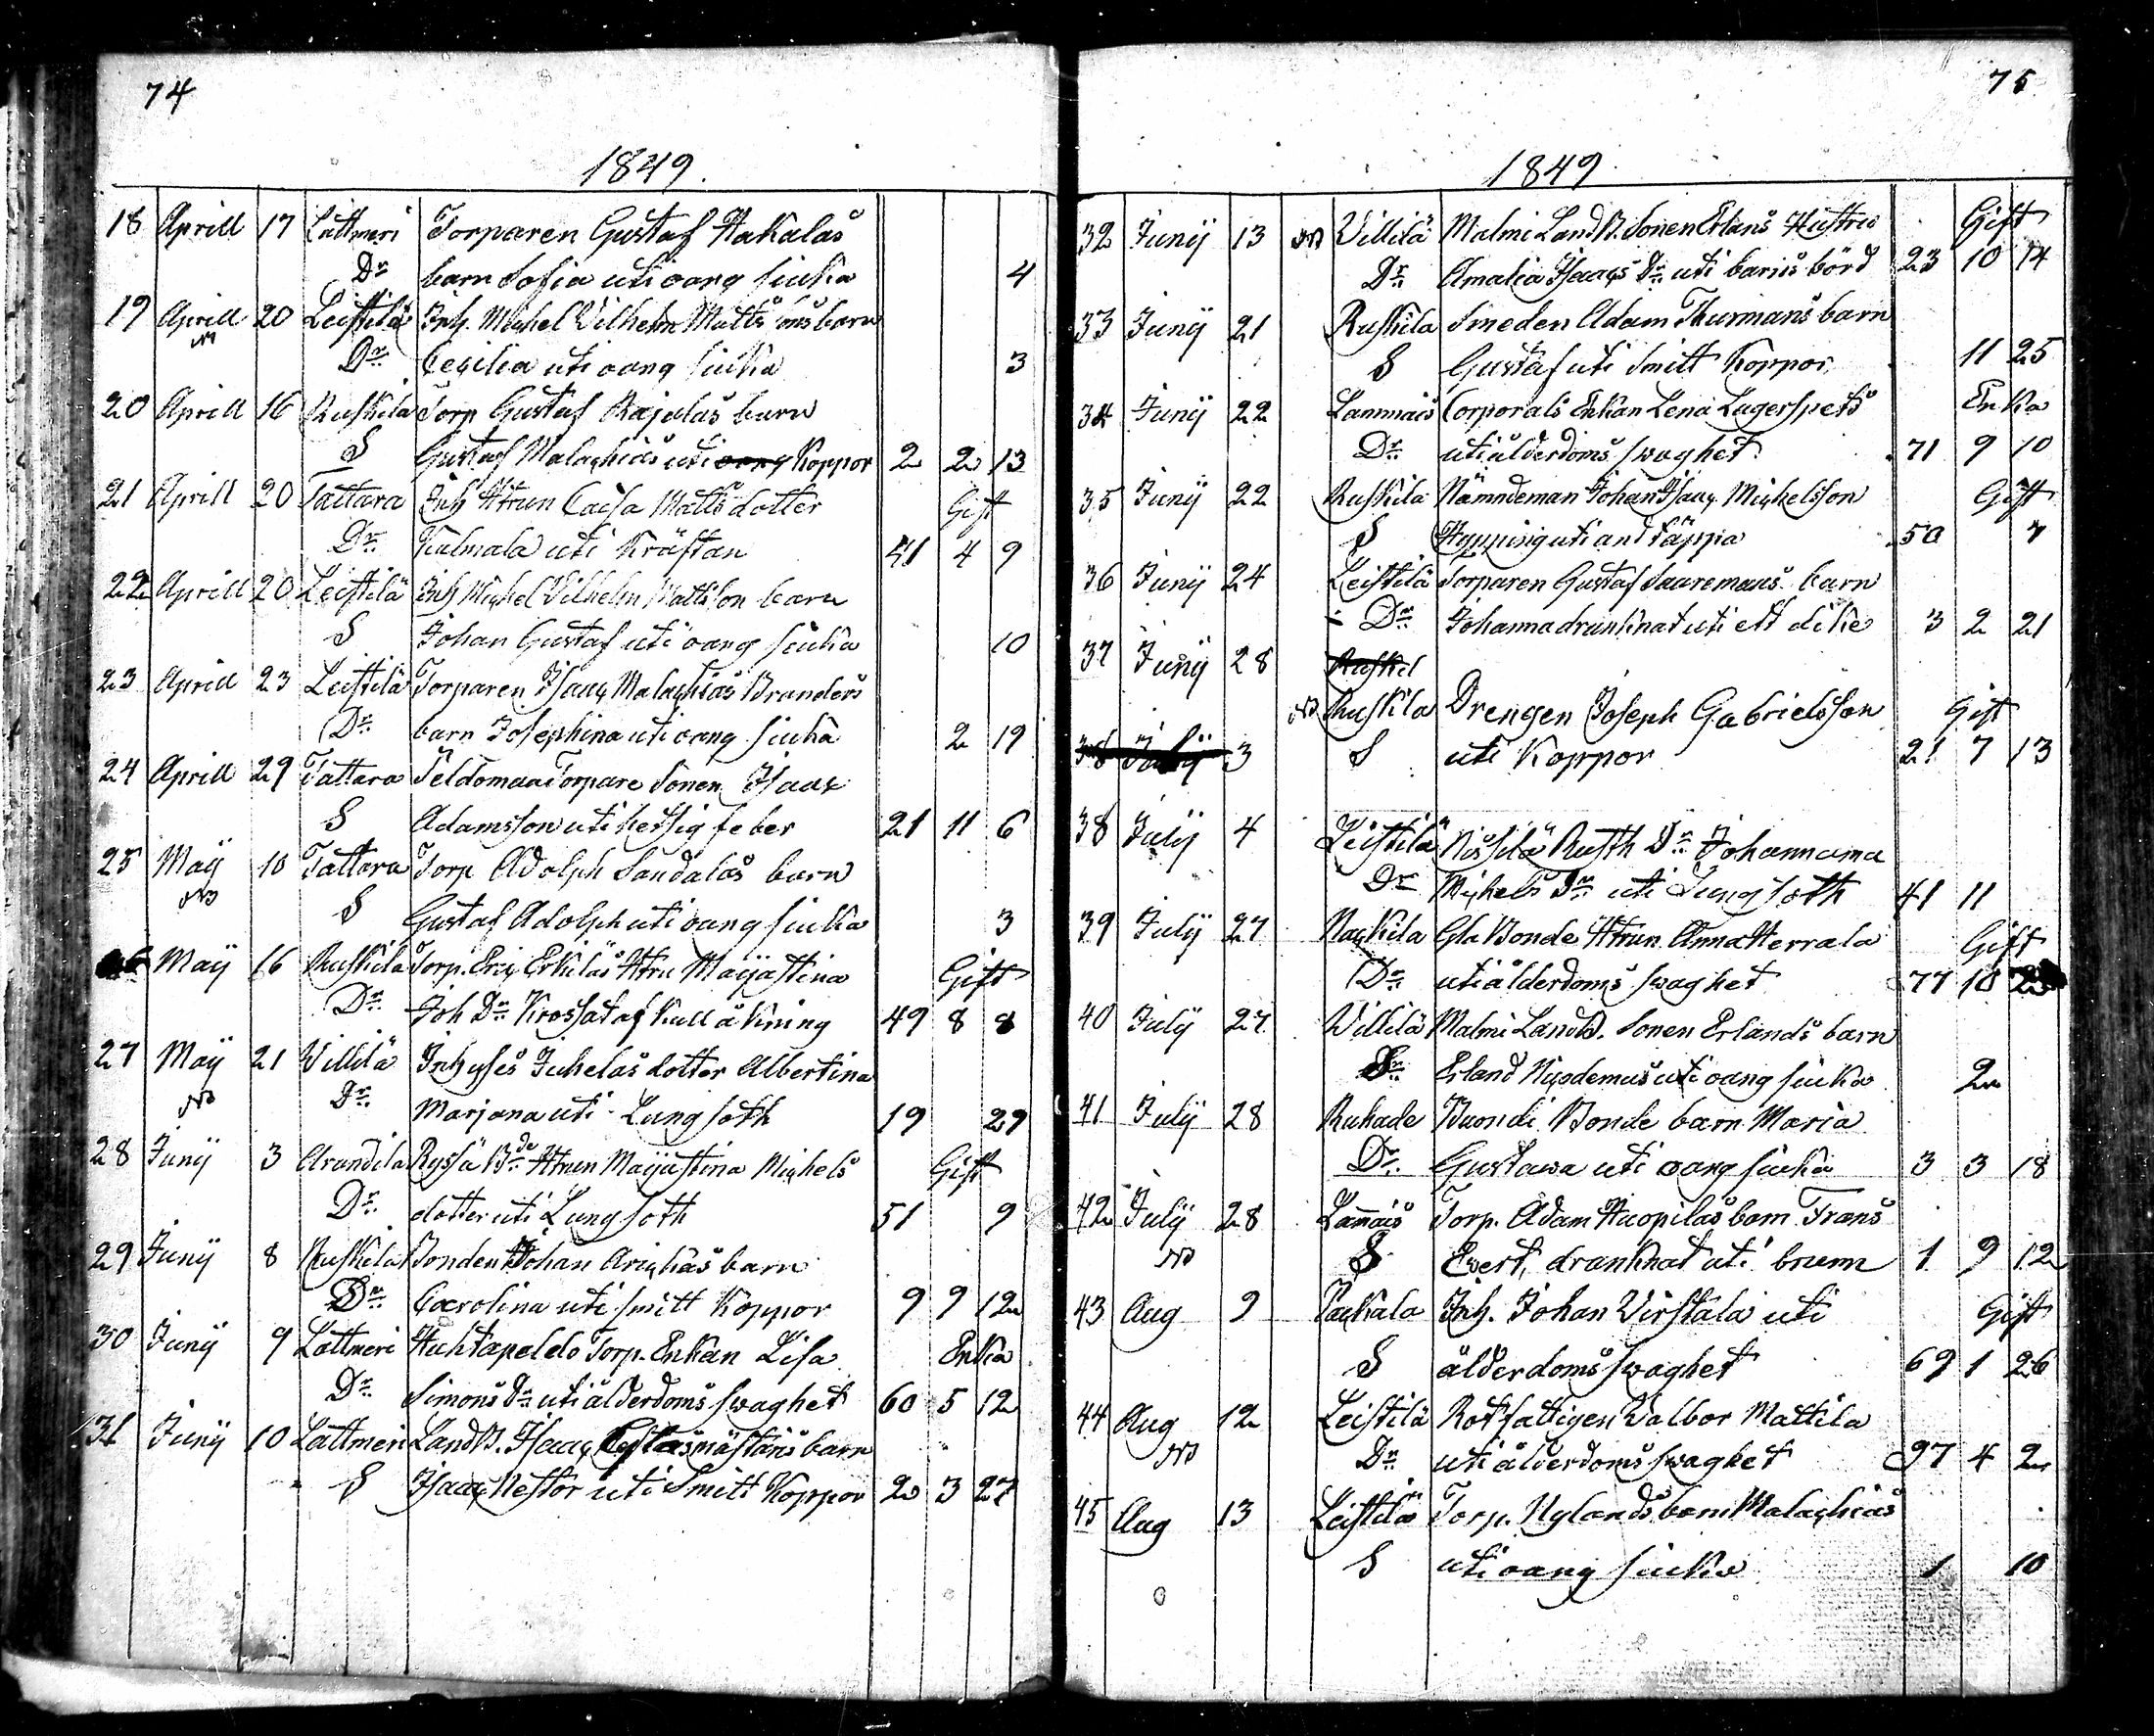 74
1849.
18 Aprill 17 Lattmeri Torparen Gustaf Hakalas
Dr barn Sofia uti oang siuka 4
19 Aprill 20 Leistilä Inh. Michel Vilhelm Matts ons barn
NB Dr Cecilia uti oang siuka 3
20 Aprill 16 Ruskila Torp Gustaf Rajalas barn
S Gustaf Malachias uti oang Koppor 2 2 13
21 Aprill 20 Tattara Inh Htrun Caisa Matts dotter Gift
Dr Kulmala uti Kräftan 41 4 9
22 Aprill 20 Leistilä Inh Michel Vilhelm Mattsson barn
S Johan Gustaf uti oang siuka 10
23 Aprill 23 Leistilä Torparen Isaac Malachias Branders
Dr barn Josephina uti oang siuka 2 19
24 Aprill 29 Tattara Peldomaa Torpare Sonen Isaac
S Adamsson uti hetsig feber 21 11 6
25 Maÿ 10 Tattara Torp Adolph Sandalas barn
NB S Gustaf Adolph uti oang siuka 3
26 Maÿ 16 Ruskila Torp. Eric Erkiläs Htru Maijastina Gift
Dr Joh Dr Krossat af Kull åkning 49 8 8
27 Maÿ 21 Villilä Inhyses Juhelas dotter Albertina
NB Dr Marjana uti Lung soth 19 29
28 Junÿ 3 Arandila Ryssä Bde Htrun Maijastina Michels Gift
Dr dotter uti Lung soth 51 9
29 Junÿ 8 Ruskila Bonden Johan Arickas barn
Dr Carolina uti smitt Koppor 9 9 12
30 Junÿ 9 Lattmeri Huhtapeldo Torp. Enkan Lisa Enka
Dr Simons Dr uti ålderdoms swaghet 60 5 12
31 Junÿ 10 Lattmeri LandB. Isaac mästars barn
S Isaac Nestor uti Smitt Koppor 2 3 27
75
1849
32 Junÿ 13 NB Villilä Malmi LandB. Sonen Erlans Hustru Gift
Dr Amalia Isaacs Dr uti barns börd 23 10 14
33 Junÿ 21 Ruskila Smeden Adam Thurmans barn
S Gustaf uti Smitt Koppor 11 25
34 Junÿ 22 Lammais Corporals Enkan Lena Lagerspets Enka
Dr uti ålderdoms swaghet 71 9 10
35 Junÿ 22 Ruskila Nämndeman Johan Isaac Michelsson Gift
S Hypping uti and täppa 50 7
36 Junÿ 24 Leistilä Torparen Gustaf Saaremans barn
Dr Johanna drunknat uti ett dike 3 2 21
37 Junÿ 28 Ruskil
NB Ruskila Drengen Joseph Gabrielsson Gift
38 Julÿ 3 S uti Koppor 21 7 13
38 Julÿ 4 Leistilä Nissilä Rusth Dr Johannama
Dr Michels Dr uti Lung soth 41 11
39 Julÿ 27 Nackila Gla Bonde Htrun Anna Herrala Gift
Dr uti ålderdoms swaghet 77 10
40 Julÿ 27 Villilä Malmi LandB. Sonen Erlands barn
Erland Nicodemus uti oang siuka 2
41 Julÿ 28 Ruhade Buondi Bonde barn Maria
Dr Gustawa uti oang siuka 3 3 18
42 Julÿ 28 Lam̄ais Torp. Adam Huopilas barn Frans
NB S Evert, drunknat uti brunn 1 9 12
43 Aug 9 Packala Inh. Johan Virstala uti Gift
S ålderdoms swaghet 69 1 26
44 Aug 12 Leistilä Rotfattigen Walbor Mattila
NB Dr uti ålderdoms swaghet 97 4 2
45 Aug 13 Leistilä Torp. Nylands barn Malachias
S uti oang siuka 1 10